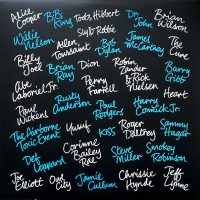 Alice Cooper B.B. King Toots Hibbert Dr. John Brian Wilson
Willie Nelson Allen Toussaint Sly & Robbie Bob Dylan James McCartney The Cure
Billy Joel Brian Ray Dion Robin Zander & Rick Nielsen Barry Gibb
Abe Laboriel Jr. Perry Farrell Heart
Paul Wickens Rusty Anderson Paul Rodgers Harry Connick Jr.
The Airborne Toxic Event Yusuf KISS Roger Daltrey Sammy Hagar
Def Leppard Corinne Bailey Rae Steve Miller Smokey Robinson
Joe Elliott Owl City Jamie Cullum Chrissie Hynde Jeff Lynne